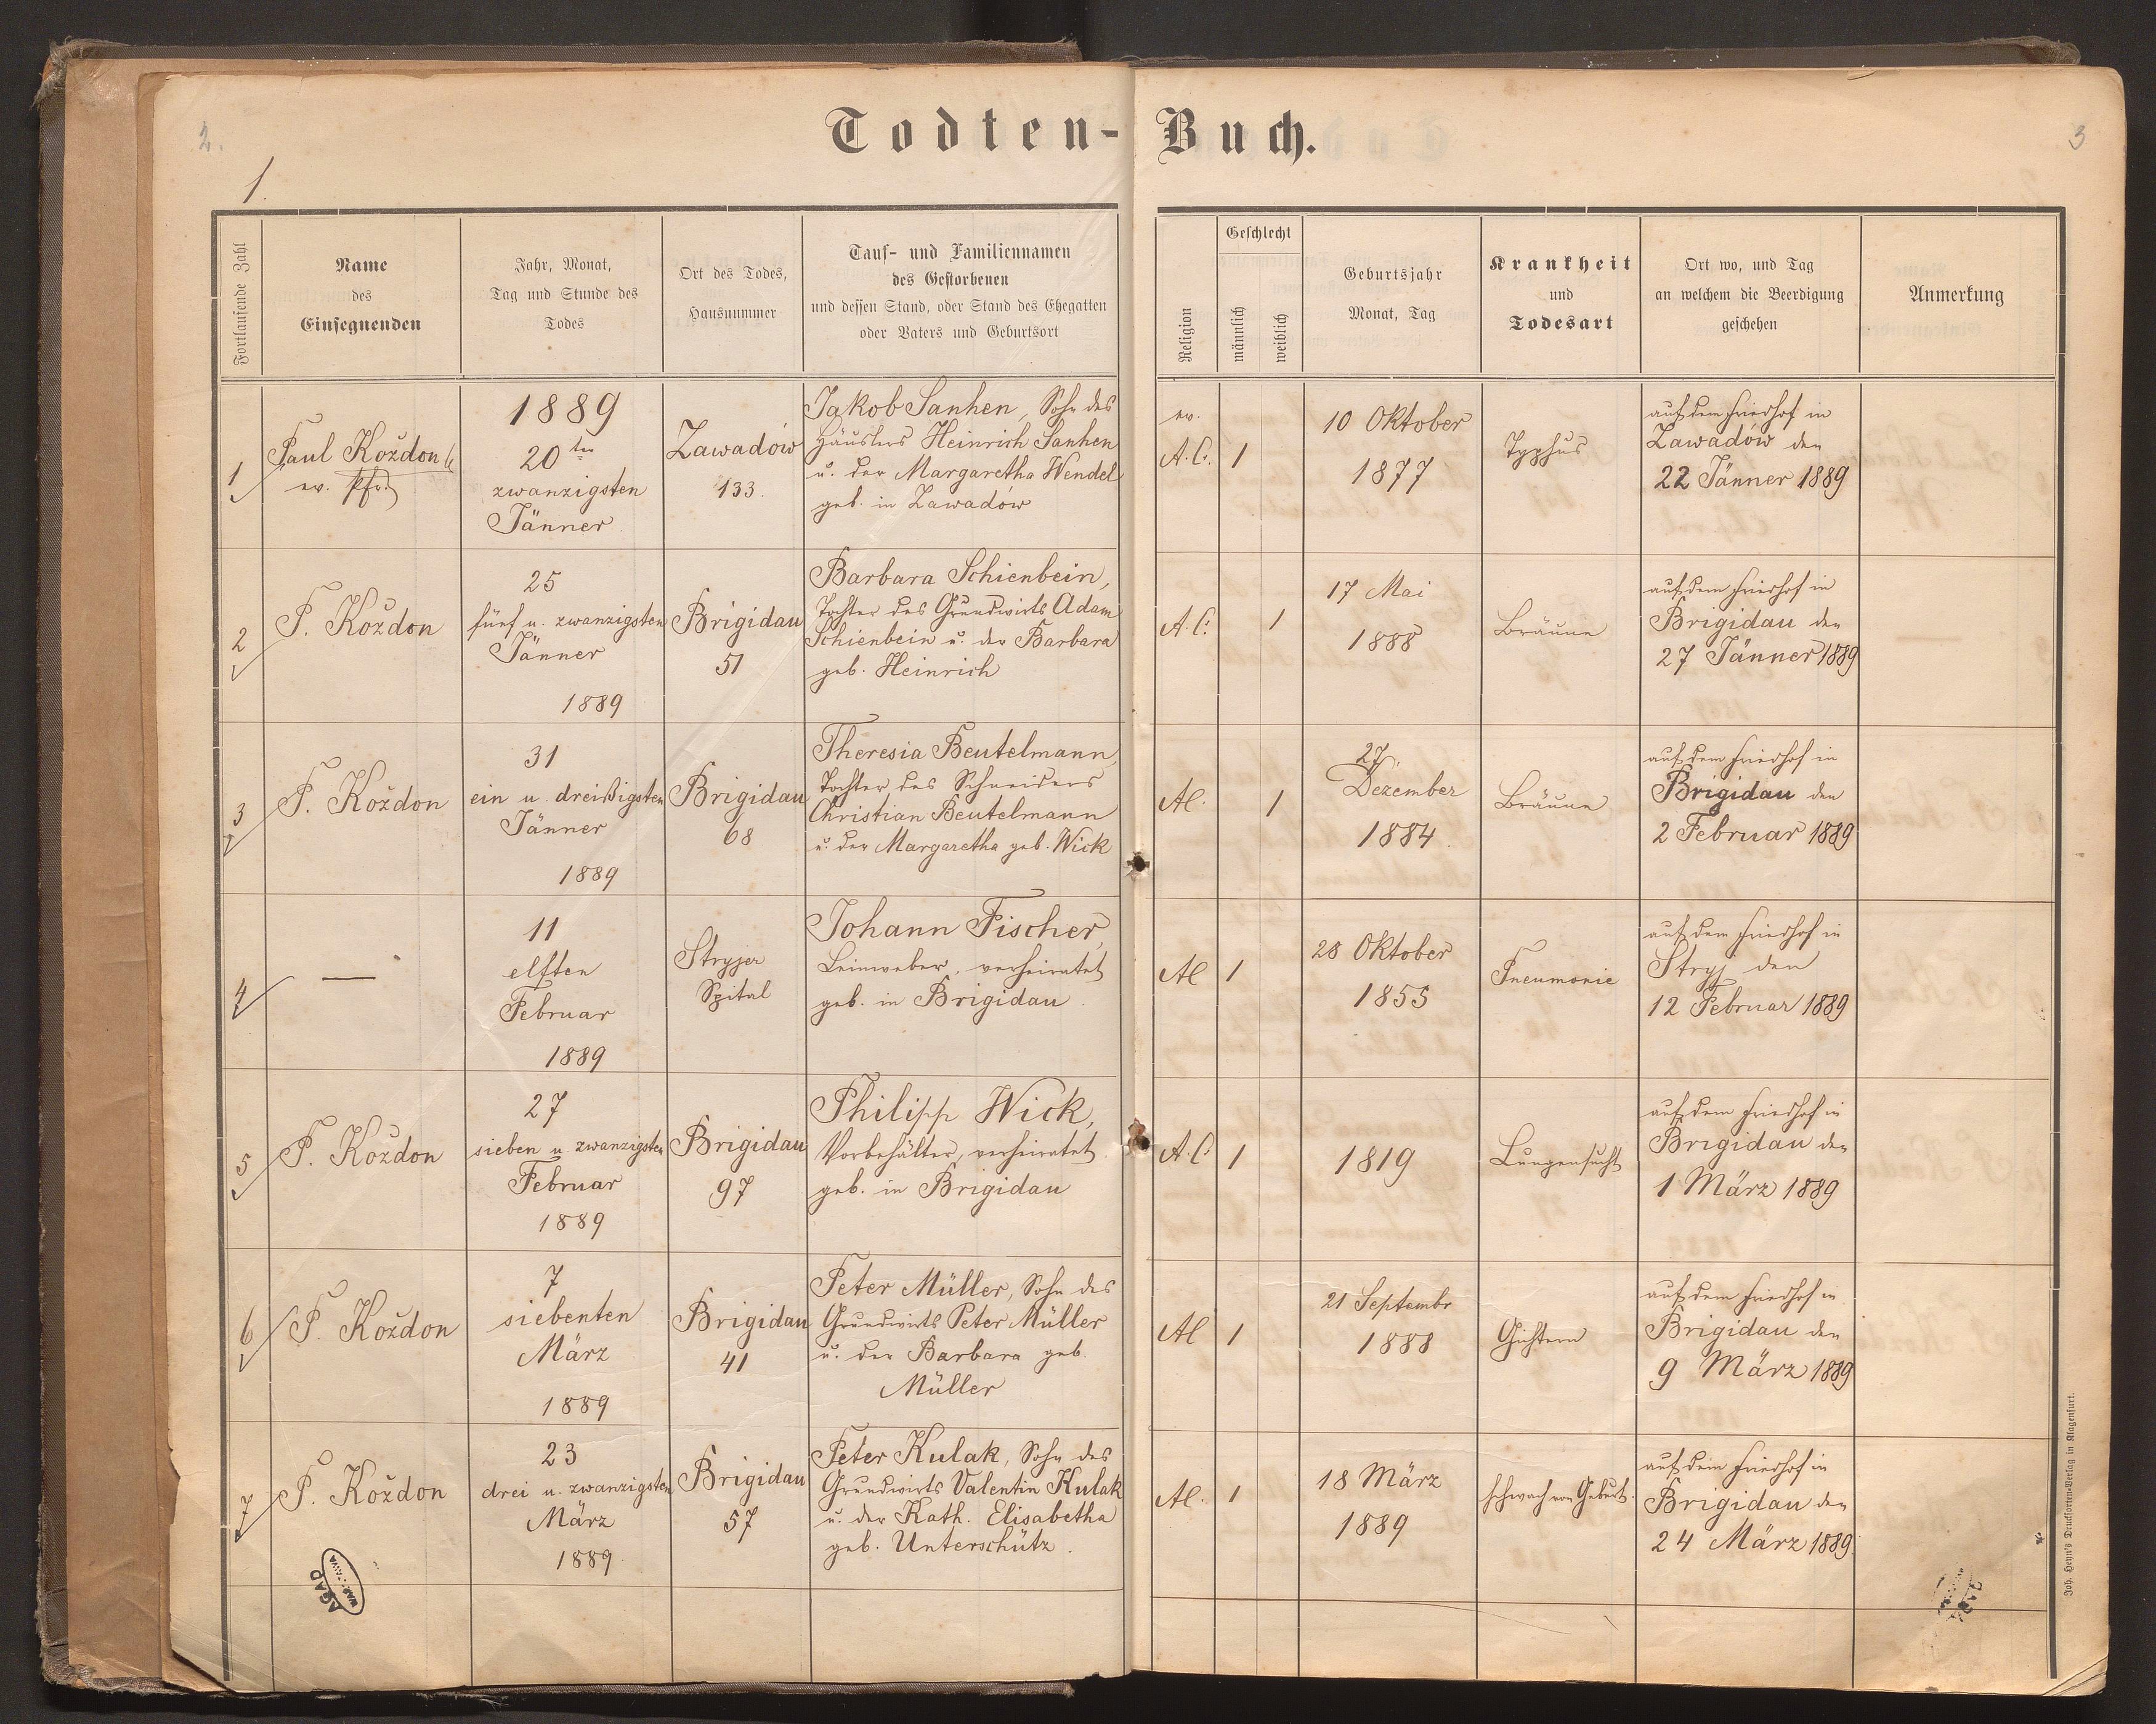 2.
3
Todten-Buch.
1.
Fortlaufende Zahl
Name
des
Einsegnenden
Jahr, Monat,
Tag und Stunde des
Todes
Ort des Todes,
Hausnummer
Tauf- und Familiennamen
des Gestorbenen
und dessen Stand, oder Stand des Ehegatten
oder Vaters und Geburtsort
Religion
Geschlecht
männlich
weiblich
Geburtsjahr
Monat, Tag
Krankheit
und
Todesart
Ort wo, und Tag
an welchem die Beerdigung
geschehen
Anmerkung
1
Paul Koždon
ev. Pfr.
1889
20ten
zwanzigsten
Jänner
Zawadów
133.
Jakob Sanhen, Sohn des
Häuslers Heinrich Sanhen
u. der Margaretha Wendel
geb. in Zawadów
ev.
A.C.
1
10 Oktober
1877
Typhus
auf dem Friedhof in
Zawadów den
22 Jänner 1889
2
P. Koždon
25
fünf u. zwanzigsten
Jänner
1889
Brigidau
51
Barbara Schienbein,
Tochter des Grundwirts Adam
Schienbein u. der Barbara
geb. Heinrich
A.C.
1
17 Mai
1888
Bräune
auf dem Friedhof in
Brigidau den
27 Jänner 1889
3
P. Koždon
31
ein u. dreißigsten
Jänner
1889
Brigidau
68
Theresia Beutelmann,
Tochter des Schneiders
Christian Beutelmann
u. der Margaretha geb. Wick
AC.
1
27
Dezember
1884
Bräune
auf dem Friedhof in
Brigidau den
2 Februar 1889
4
—
11
elften
Februar
1889
Stryjer
Spital
Johann Fischer,
Leinweber, verheiratet
geb. in Brigidau
AC
1
28 Oktober
1855
Pneumonie
auf dem Friedhof in
Stryj den
12 Februar 1889
5
P. Koždon
27
sieben u. zwanzigsten
Februar
1889
Brigidau
97
Philipp Wick,
Vorbehälter, verheiratet
geb. in Brigidau
A.C.
1
1819
Lungensucht
auf dem Friedhof in
Brigidau den
1 März 1889
6
P. Koždon
7
siebenten
März
1889
Brigidau
41
Peter Müller, Sohn des
Grundwirts Peter Müller
u. der Barbara geb.
Müller
AC
1
21 Septembr
1888
Gichtern
auf dem Friedhof in
Brigidau den
9 März 1889
7
P. Koždon
23
drei u. zwanzigsten
März
1889
Brigidau
57
Peter Kulak, Sohn des
Grundwirts Valentin Kulak
u. der Kath. Elisabetha
geb. Unterschütz.
AC.
1
18 März
1889
schwach von Geburt.
auf dem Friedhof in
Brigidau den
24 März 1889
AGAD
Joh. Heyn's Drucksorten-Verlag in Klagenfurt.